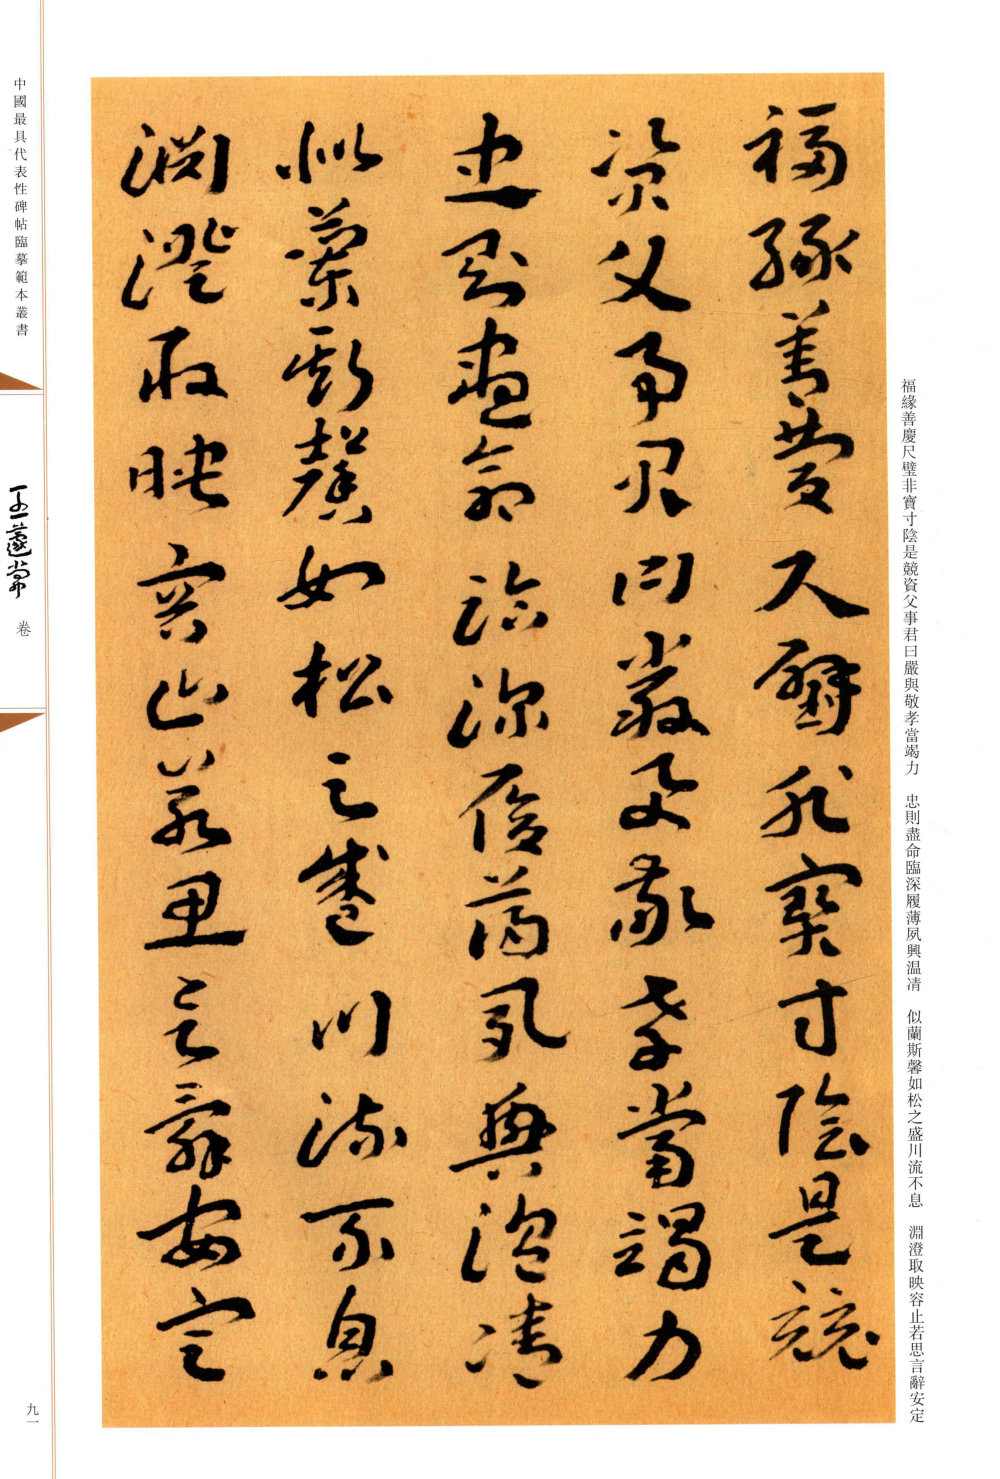 福緣善慶尺璧非寶寸陰是競
資父事君曰嚴與敬孝當竭力
忠則盡命臨深履薄夙興温凊
似蘭斯馨如松之盛川流不息
淵澄取映容止若思言辭安定
福緣善慶尺璧非寶寸陰是競資父事君曰嚴與敬孝當竭力　忠則盡命臨深履薄夙興温凊　似蘭斯馨如松之盛川流不息　淵澄取映容止若思言辭安定
中國最具代表性碑帖臨摹範本叢書
王蘧常
卷
九一